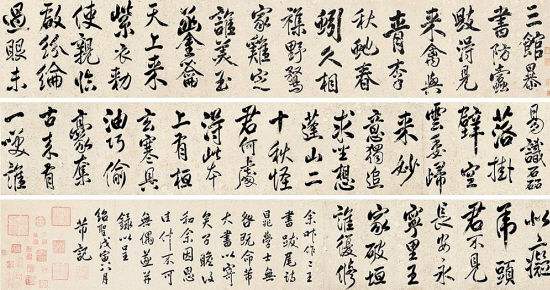 三館暴
書防蠹
毀得見
來禽與
青李
秋蛇春
蚓久相
襍野鶩
家雞定
誰美玉
函金籥
天上來
紫衣勅
使親臨
啟紛綸
過眼未
易識磊
落掛
壁空
雲委歸
来妙
意獨追
求坐想
蓬山二
十秋怪
君何處
得此本
上有桓
玄寒具
油巧偷
豪奪
古来有
一笑誰
似癡
虎頭
君不見
長安永
寧里王
家破垣
誰復修
余昨作二王
書跋尾詩
晁學士無
咎既命芾
大書以寄
矣今瞻
和余因思
佳什不可
無偶遂并
錄以上
紹聖戊寅八月
芾記